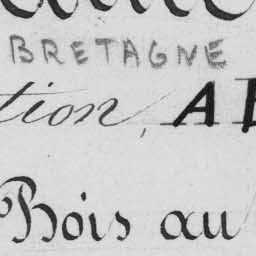 BRETAGNE
tion, A
Bois au